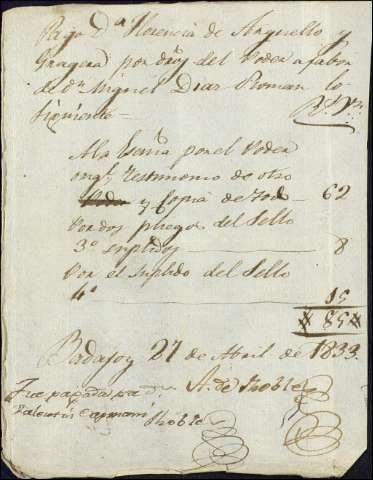 Pago Dª Florencia de Arguello y
Gragera por dros del Poder a fabor
de dn Miguel Diaz Roman lo
siguiente=
Rs Vn
A la Escnia por el Poder
ingl, testimonio de otro
y copia de todo 62
Por dos pliegos del Sello
3º suplidos 8
Por el suplido del Sello
4º 15
# 85 #
Badajoz 27 de Abril de 1833.
A. de Robles
Fue pagada pa dn
Valentin Capmani
Robles